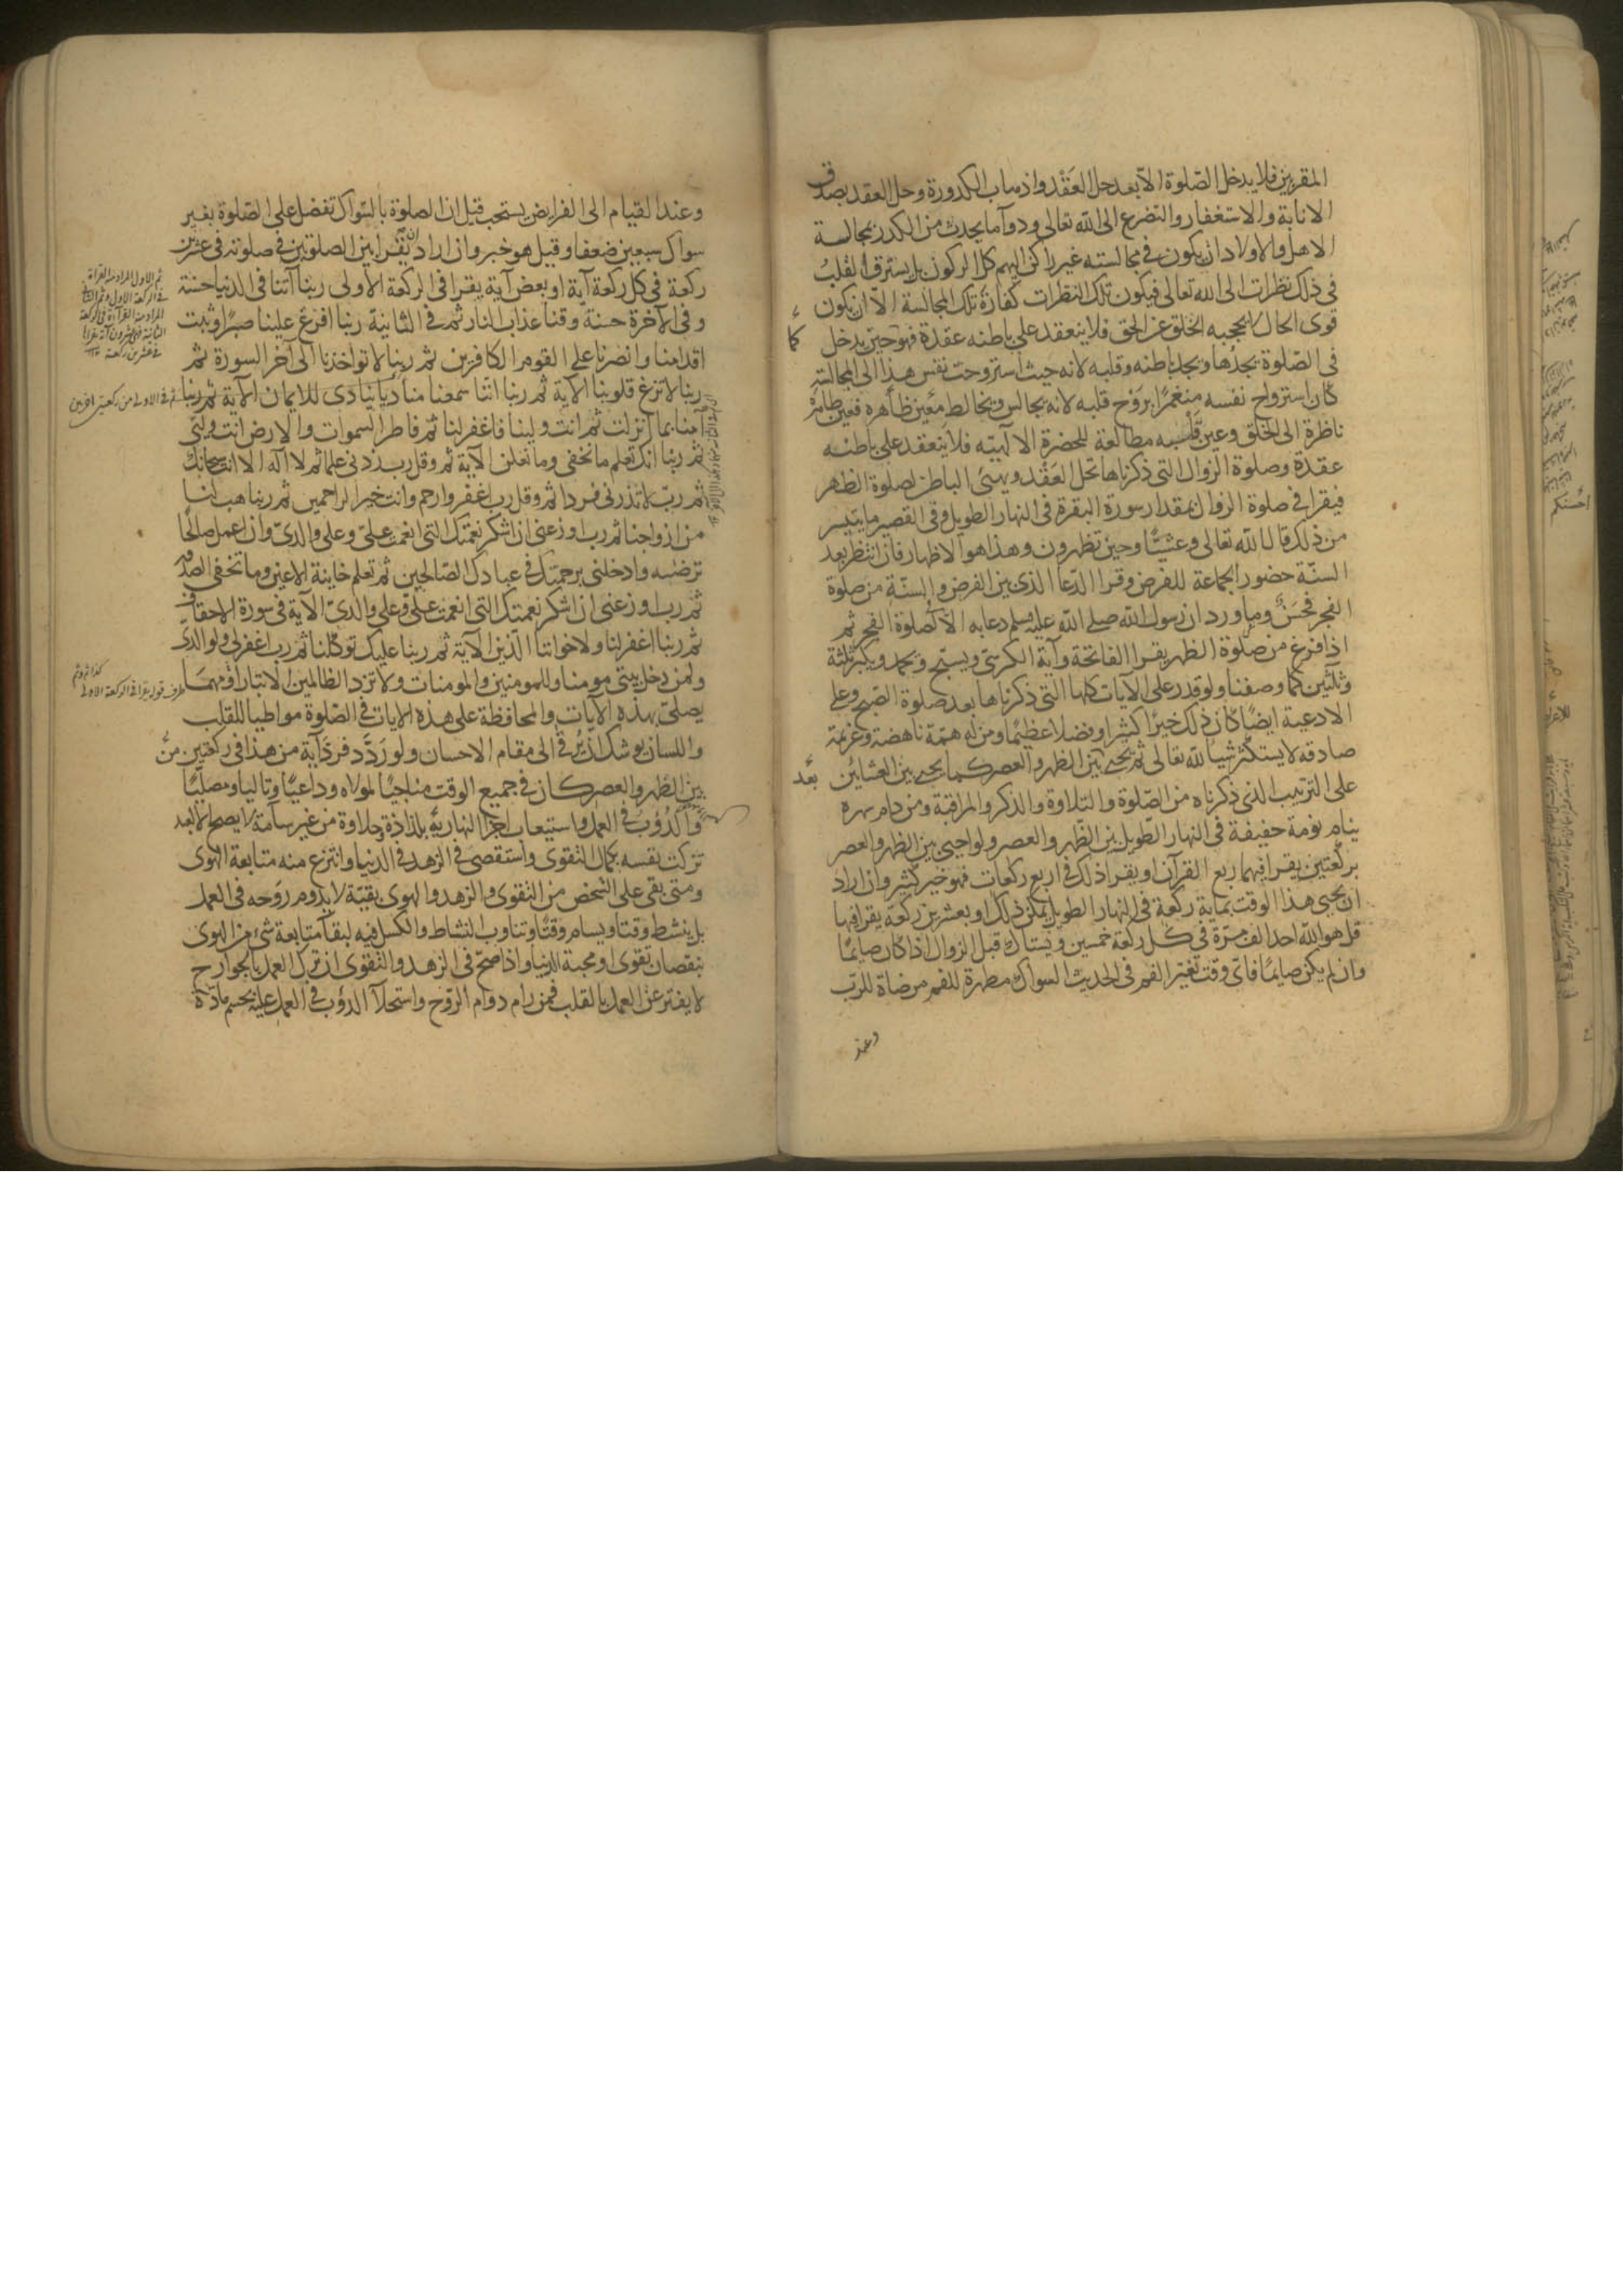 المقربين فلا يدخل الصلوة الا بعد حل العقد واذهاب الكدورة وحل العقد بصدق
الانابة والاستغفار والتضرع الى الله تعالى ودوآ ما يحدث من الكدر بمجالسة
الاهل والاولاد ان يكون فى مجالسته غير راكن اليهم كل الركون بل يسترق القلب
فى ذلك نظرات الى الله تعالى فيكون تلك النظرات كفارة تلك المجالسة الا ان يكون
قوى الحال لا يحجبه الخلق عن الحق فلا ينعقد على باطنه عقدة فهو حين يدخل كما
فى الصلوة يجدها ويجد باطنه وقلبه لانه حيث استروحت نفس هذا الى المجالسة
كان استرواح نفسه منغمرا بروح قلبه لانه يجالس ويخالط معين ظاهره فعين ظاهره
ناظرة الى الخلق وعين قلبه مطالعة للحضرة الالهيه فلا ينعقد على باطنه
عقدة وصلوة الزوال التى ذكرناها تحل العقد ويهيئ الباطن لصلوة الظهر
فيقرا فى صلوة الزوال بمقدار سورة البقرة فى النهار الطويل وفى القصير ما يتيسر
من ذلك قال الله تعالى وعشيا وحين تظهرون وهذا هو الاظهار فان انتظر بعد
السنة حضور الجماعة للفرض وقرا الدعا الذى بين الفرض والسنة من صلوة
الفجر فحسن وما ورد ان رسول الله صلى الله عليه وسلم دعا به الا لصلوة الفجر ثم
اذا فرغ من صلوة الظهر يقرا الفاتحة وآية الكرسى ويسبح ويحمد ويكبر ثلثة
وثلثين كما وصفنا ولو قدر على الآيات كلها التى ذكرناها بعد صلوة الصبح وعلى
الادعية ايضا كان ذلك خيرا كثيرا وفضلا عظيما ومن له همة ناهضة وعزيمة
صادقه لا يستكثر شيا لله تعالى ثم يحيى بين الظهر والعصر كما يحيى بين العشائين بعد
على الترتيب الذى ذكرناه من الصلوة والتلاوة والذكر والمراقبة ومن دام سهره
ينام نومة خفيفة فى النهار الطويل بين الظهر والعصر ولو احيى بين الظهر والعصر
بركعتين يقرا فيهما ربع القرآن او يقرا ذلك فى اربع ركعات فهو خير كثير وان اراد
ان يحيى هذا الوقت بماية ركعة فى النهار الطويل يمكن ذلك او بعشرين ركعة يقرا فيها
قل هو الله احد الف مرة فى كل ركعة خمسين ويستاك قبل الزوال اذا كان صايما
وان لم يكن صايما فاى وقت تغير الفم فى الحديث السواك مطهرة للفم مرضاة للرب
وعند
وعند القيام الى الفرايض يستحب قيل ان الصلوة بالسواك تفضل على الصلوة بغير
سواك سبعين ضعفا وقيل هو خبر وان اراد ان يقرا بين الصلوتين فى صلوته فى عشرين
ركعة فى كل ركعة آية او بعض آية يقرا فى الركعة الاولى ربنا آتنا فى الدنيا حسنة
وفى الآخرة حسنة وقنا عذاب النار ثم فى الثانية ربنا افرغ علينا صبرا وثبت
اقدامنا وانصرنا على القوم الكافرين ثم ربنا لا تواخذنا الى آخر السورة ثم
ربنا لا تزغ قلوبنا الآية ثم ربنا اننا سمعنا مناديا ينادى للايمان الآية ثم ربنا
آمنا بما انزلت ثم انت ولينا فاغفر لنا ثم فاطر السموات والارض انت وليى
ثم ربنا انك تعلم ما نخفى وما نعلن الآية ثم وقل رب زدنى علما ثم لا اله الا انت سبحانك
ثم رب لا تذرنى فردا ثم وقل رب اغفر وارحم وانت خير الراحمين ثم ربنا هب لنا
من ازواجنا ثم رب اوزعنى ان اشكر نعمتك التى انعمت على وعلى والدى وان اعمل صالحا
ترضيه وادخلنى برحمتك فى عبادك الصالحين ثم تعلم خاينة الاعين وما تخفى الصدور
ثم رب اوزعنى ان اشكر نعمتك التى انعمت على وعلى والدى الآية فى سورة الاحقاف
ثم ربنا اغفر لنا ولاخواننا الذين الآية ثم ربنا عليك توكلنا ثم رب اغفر لى ولوالدى
ولمن دخل بيتى مومنا وللمومنين والمومنات ولا تزد الظالمين الا تبارا فمهما
يصلى بهذه الآيات والمحافظة على هذه الايات فى الصلوة مواطيا للقلب
واللسان يوشك ان يرقى الى مقام الاحسان ولو ردد فرد آية من هذا فى ركعتين من
بين الظهر والعصر كان فى جميع الوقت مناجيا لمولاه وداعيا وتاليا ومصليا
والدؤب فى العمل واستيعاب اجزا النهار به بلذاذة وحلاوة من غير سآمة لا يصح الا لعبد
تزكت نفسه بكمال التقوى واستقصى فى الزهد فى الدنيا وانتزع منه متابعة الهوى
ومتى بقى على الشخص من التقوى والزهد والهوى بقية لا يدوم روحه فى العمل
بل ينشط وقتا ويسام وقتا ويتناوب النشاط والكسل فيه لبقآ متابعة شئ من الهوى
بنقصان تقوى او محبة الدنيا واذا صح فى الزهد والتقوى ان ترك العمل بالجوارح
لا يفتر عن العمل بالقلب فمن رام دوام الروح واستحلآ الدؤب فى العمل عليه بحسم مادة
ثم الاول المراد منه القراة
فى الركعة الاولى وثم الثانى
المراد منه القراءة فى الركعة
الثانية
فى عشرين ركعة